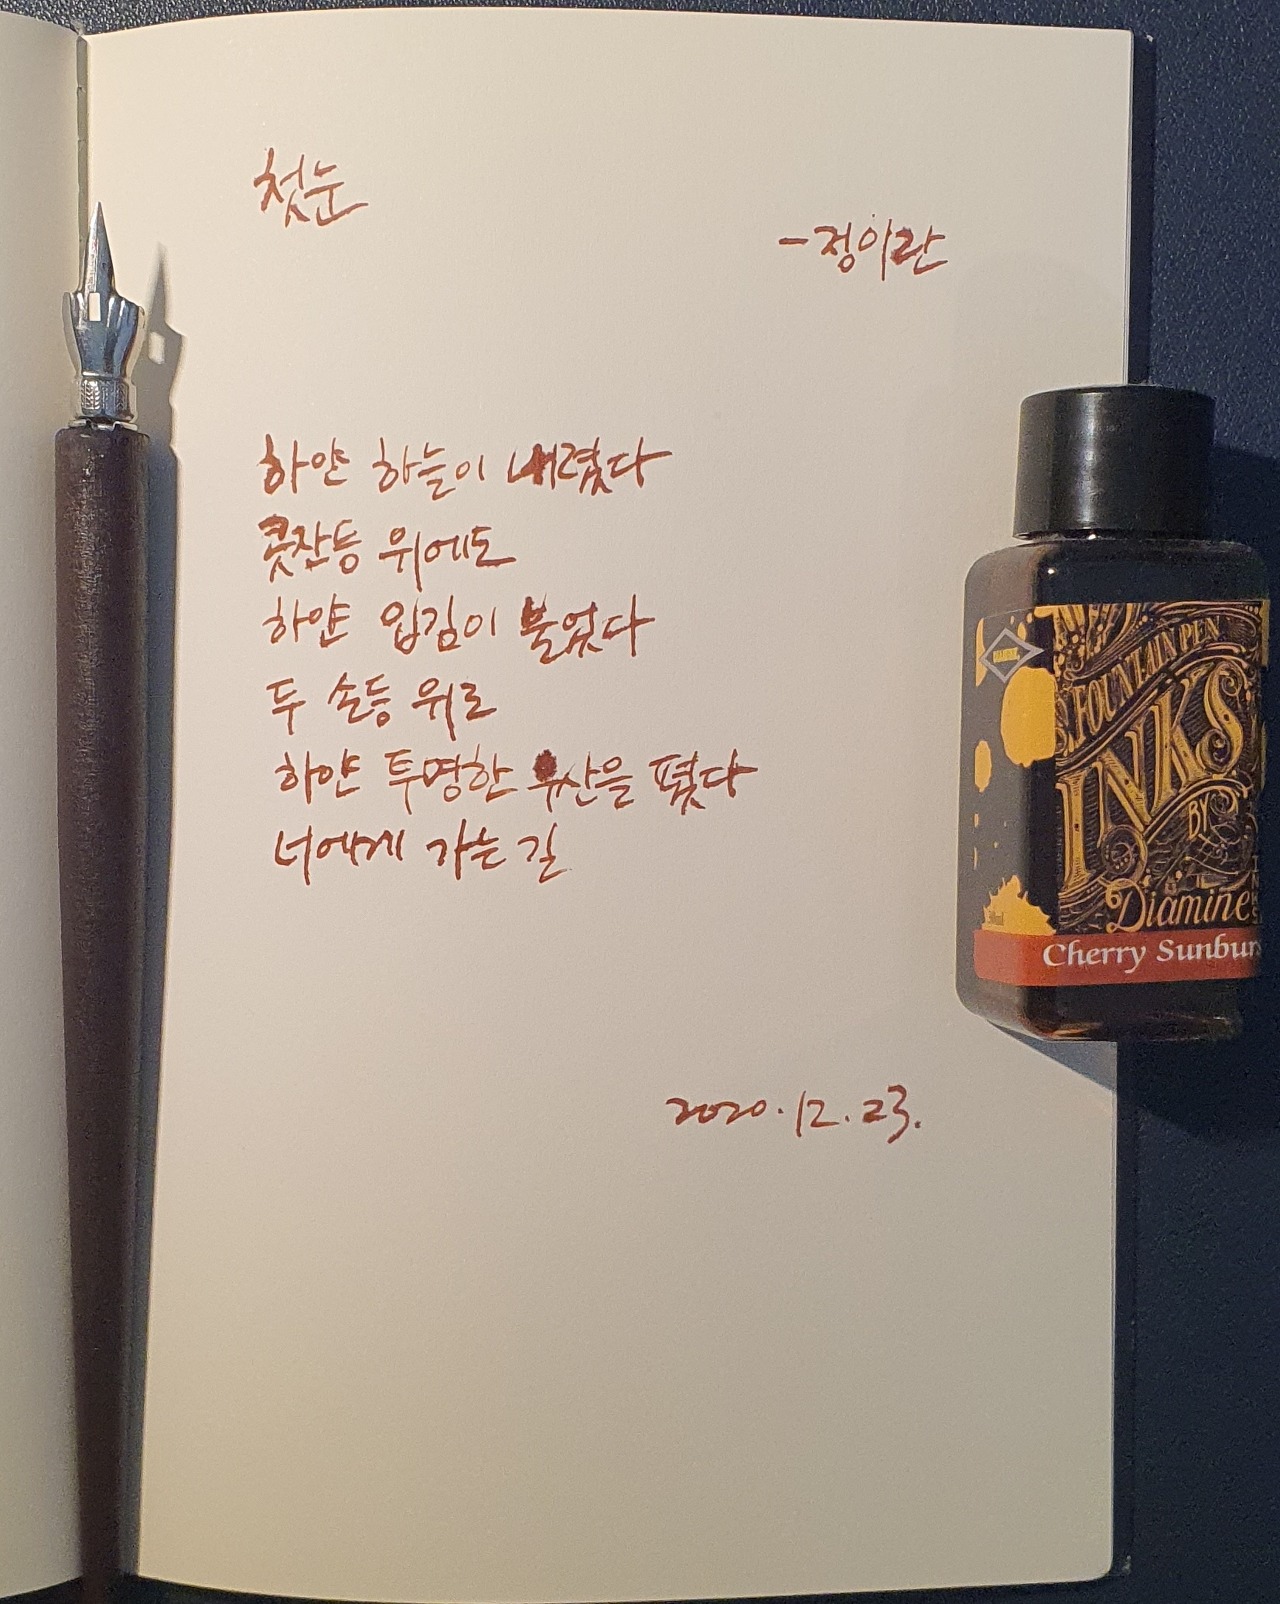 첫눈
-정이란
하얀 하늘이 내렸다
콧잔등 위에도
하얀 입김이 불었다
두 손등 위로
하얀 투명한 우산을 폈다
너에게 가는 길
2020.12.23.
FOUNTAIN PEN
INKS
BY
Diamine
Cherry Sunburs